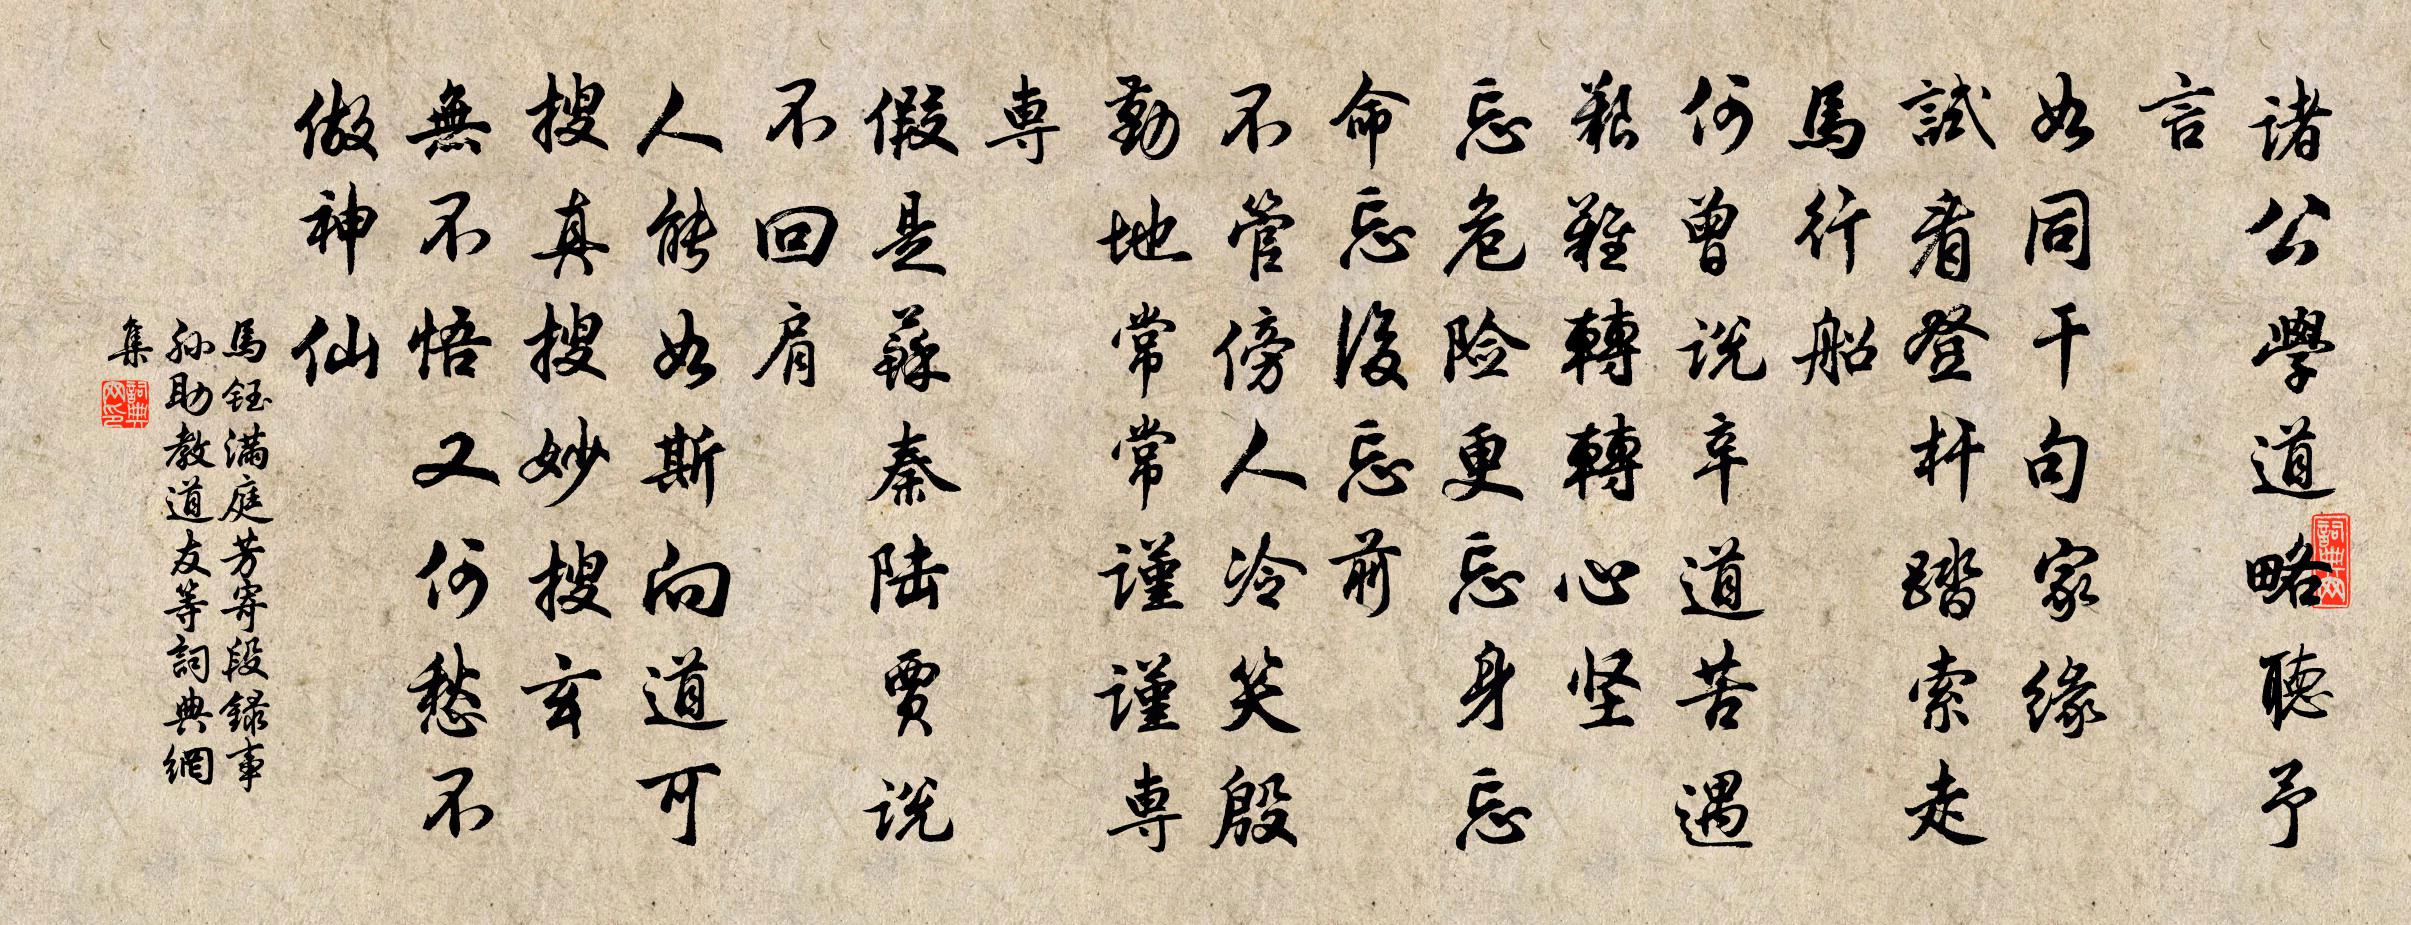 诸公學道略聽予
言
如同干句家緣
試看登杆踏索走
馬行船
何曾说辛道苦遇
艱難轉轉心坚
忘危险更忘身忘
命忘後忘前
不管傍人冷笑殷
勤地常常谨谨専
専
假是蘇秦陆贾说
不回肩
人能如斯向道可
搜真搜妙搜玄
無不悟又何愁不
做神仙
馬钰满庭芳寄段録事
孙助教道友等詞典網
集
詞典网
詞典网印